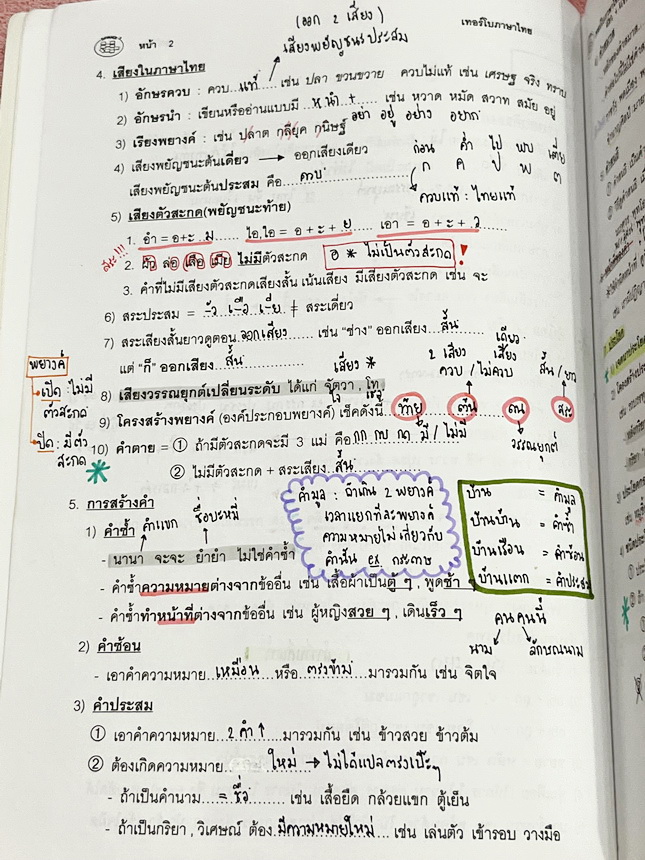 (ออก 2 เสียง)
หน้า 2
เทอร์โบภาษาไทย
เสียงพยัญชนะประสม
4. เสียงในภาษาไทย
1) อักษรควบ : ควบ...แท้.... เช่น ปลา ขวนขวาย ควบไม่แท้ เช่น เศรษฐ จริง ทราบ
2) อักษรนำ : เขียนหรืออ่านแบบมี ...ห นำ + ... เช่น หวาด หมัด สวาท สมัย อยู่
3) เรียงพยางค์ : เช่น ปลาด กลียุค กนิษฐ์ อย่า อยู่ อย่าง อยาก
4) เสียงพยัญชนะต้นเดี่ยว → ออกเสียงเดียว ก่อน ค่ำ ไป พบ เตี่ย
เสียงพยัญชนะต้นประสม คือ...ควบ... ก ค ป พ ต
ควบแท้ : ไทยแท้
5) เสียงตัวสะกด(พยัญชนะท้าย)
1. อำ = อ+ะ+ม...... ไอ,ใอ = อ + ะ + ย...... เอา = อ + ะ + ว
สระ!!!
2. ผัว ล่อ เสือ เมีย ไม่มีตัวสะกด อ * ไม่เป็นตัวสะกด !
3. คำที่ไม่มีเสียงตัวสะกดเสียงสั้น เน้นเสียง มีเสียงตัวสะกด เช่น จะ
6) สระประสม = -ัว เ-ือ เ-ีย ≠ สระเดี่ยว
7) สระเสียงสั้นยาวดูตอน ออกเสียง...... เช่น “ช่าง” ออกเสียง....สั้น....
แต่ “ก็” ออกเสียง ..สั้น.....
พยางค์
เปิด : ไม่มีตัวสะกด
ปิด : มีตัวสะกด
เสียง *
2 เสียง
เดียว
เสียง
ควบ/ไม่ควบ
สั้น/ยาว
8) เสียงวรรณยุกต์เปลี่ยนระดับ ได้แก่ จัตวา , โท
9) โครงสร้างพยางค์ (องค์ประกอบพยางค์) เช็คดังนี้ ท้าย ต้น ตน สระ
วรรณยุกต์
10) คำตาย = ① ถ้ามีตัวสะกดจะมี 3 แม่ คือ กก กบ กด มี / ไม่มี
② ไม่มีตัวสะกด + สระเสียง..สั้น.........
5. การสร้างคำ
1) คำซ้ำ คำแขก ชื่อบะหมี่
- นานา จะจะ ยำยำ ไม่ใช่คำซ้ำ
คำมูล : ถ้าเกิน 2 พยางค์
เวลาแยกทีละพยางค์
ความหมายไม่เกี่ยวกับ
คำนั้น ex กระดาษ
บ้าน = คำมูล
บ้านบ้าน = คำซ้ำ
บ้านเรือน = คำซ้อน
บ้านแตก = คำประสม
- คำซ้ำความหมายต่างจากข้ออื่น เช่น เสื้อผ้าเป็นตู้ ๆ , พูดช้า ๆ
- คำซ้ำทำหน้าที่ต่างจากข้ออื่น เช่น ผู้หญิงสวย ๆ , เดินเร็ว ๆ
คุณคนนี้
นาม ลักษณนาม
2) คำซ้อน
- เอาคำความหมาย..เหมือน.. หรือ..ตรงข้าม....มารวมกัน เช่น จิตใจ
3) คำประสม
① เอาคำความหมาย...2 คำ↑....มารวมกัน เช่น ข้าวสวย ข้าวต้ม
② ต้องเกิดความหมาย.......ใหม่ → ไม่ได้แปลตรงเป๊ะๆ
- ถ้าเป็นคำนาม ..= ชื่อ...... เช่น เสื้อยืด กล้วยแขก ตู้เย็น
- ถ้าเป็นกริยา , วิเศษณ์ ต้อง..มีความหมายใหม่.. เช่น เล่นตัว เข้ารอบ วางมือ